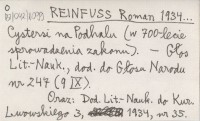 REINFUSS Roman 1934...
Cystersi na Podhalu (w 700-lecie
sprowadzenia zakonu). - Głos
Lit.-Nauk., dod. do Głosu Narodu
nr 247 (9 IX).
Oraz: Dod. Lit.-Nauk. do Kur.
Lwowskiego 3, 1934, nr 35.